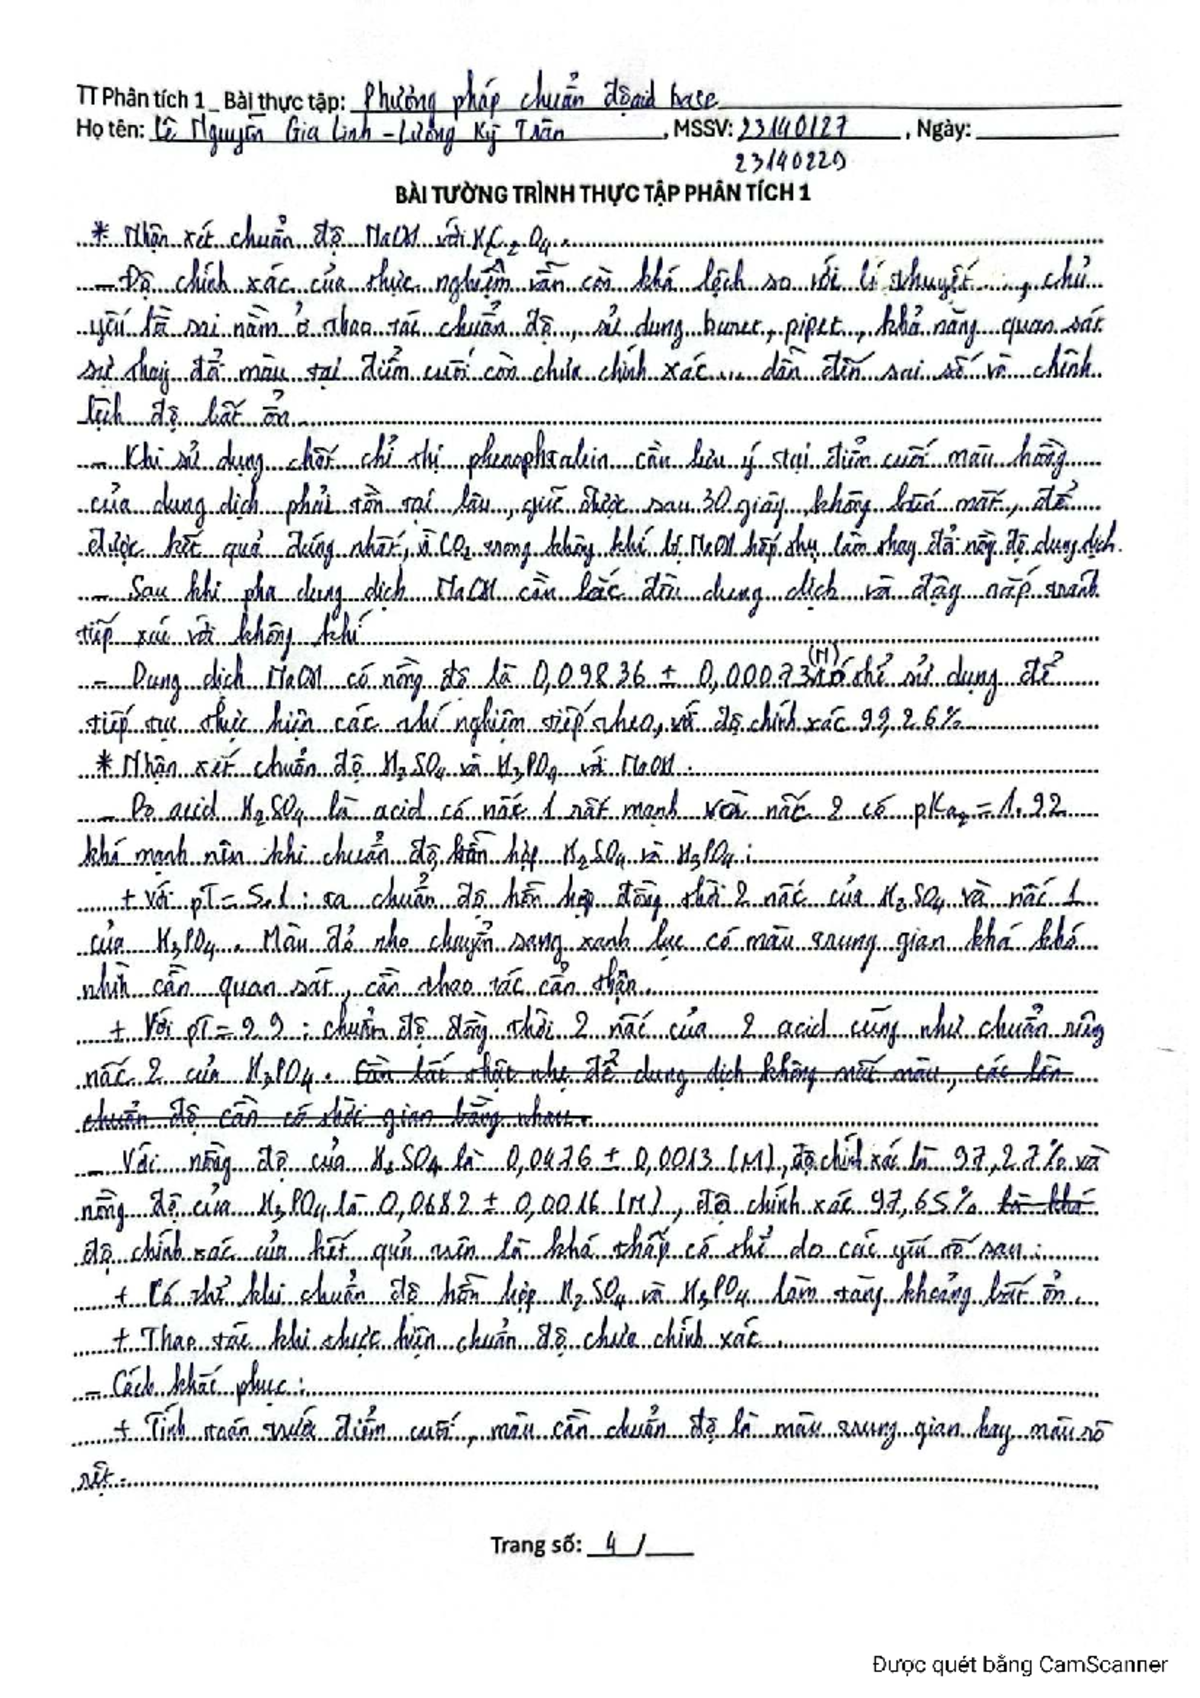 TT Phân tích 1 _ Bài thực tập: Phương pháp chuẩn độ acid base
Họ tên: Lê Nguyễn Gia Linh - Lương Kỳ Trân, MSSV: 23140127, Ngày:
23140229
BÀI TƯỜNG TRÌNH THỰC TẬP PHÂN TÍCH 1
* Nhận xét chuẩn độ NaOH với
- Độ chính xác của thực nghiệm vẫn còn khá lệch so với lí thuyết..., chủ
yếu là sai nằm ở thao tác chuẩn độ, sử dụng buret, pipet, khả năng quan sát
sự thay đổi màu tại điểm cuối còn chưa chính xác... dẫn đến sai số và chênh
lệch độ bất ổn.
- Khi sử dụng chất chỉ thị phenophtalein cần lưu ý tại điểm cuối màu hồng
của dung dịch phải tồn tại lâu, giữ được sau 30 giây, không biến mất, để
được kết quả đúng nhất, vì CO2 trong không khí bị NaOH hấp thụ làm thay đổi nồng độ dung dịch.
- Sau khi pha dung dịch NaOH cần lắc đều dung dịch và đậy nắp tránh
tiếp xúc với không khí
- Dung dịch NaOH có nồng độ là 0,09836 ± 0,00073 (M) có thể sử dụng để
tiếp tục thực hiện các thí nghiệm tiếp theo, với độ chính xác 99,26%
* Nhận xét chuẩn độ H2SO4 và H3PO4 với NaOH.
- Do acid H2SO4 là acid có nấc 1 rất mạnh và nấc 2 có pKa2 = 1.92
khá mạnh nên khi chuẩn độ hỗn hợp H2SO4 và H3PO4:
+ với pT = 5.1: ta chuẩn độ hỗn hợp đồng thời 2 nấc của H2SO4 và nấc 1
của H3PO4. Màu đỏ nho chuyển sang xanh lục có màu trung gian khá khó
nhìn cần quan sát, cần thao tác cẩn thận.
+ Với pT = 9.9: chuẩn độ đồng thời 2 nấc của 2 acid cũng như chuẩn riêng
nấc 2 của H3PO4. Cần lắc thật nhẹ để dung dịch không mất màu, các lần
chuẩn độ cần có thời gian bằng nhau.
- Với nồng độ của H2SO4 là 0,0476 ± 0,0013 (M), độ chính xác là 97,27% và
nồng độ của H3PO4 là 0,0682 ± 0,0016 (M), độ chính xác 97,65% là khá
độ chính xác của kết quả trên là khá thấp có thể do các yếu tố sau:
+ Có thể khi chuẩn độ hỗn hợp H2SO4 và H3PO4 làm tăng khoảng bất ổn.
+ Thao tác khi thực hiện chuẩn độ chưa chính xác.
- Cách khắc phục:
+ Tính toán trước điểm cuối, màu cần chuẩn độ là màu trung gian hay màu rõ
rệt.
Trang số: 4 /
Được quét bằng CamScanner